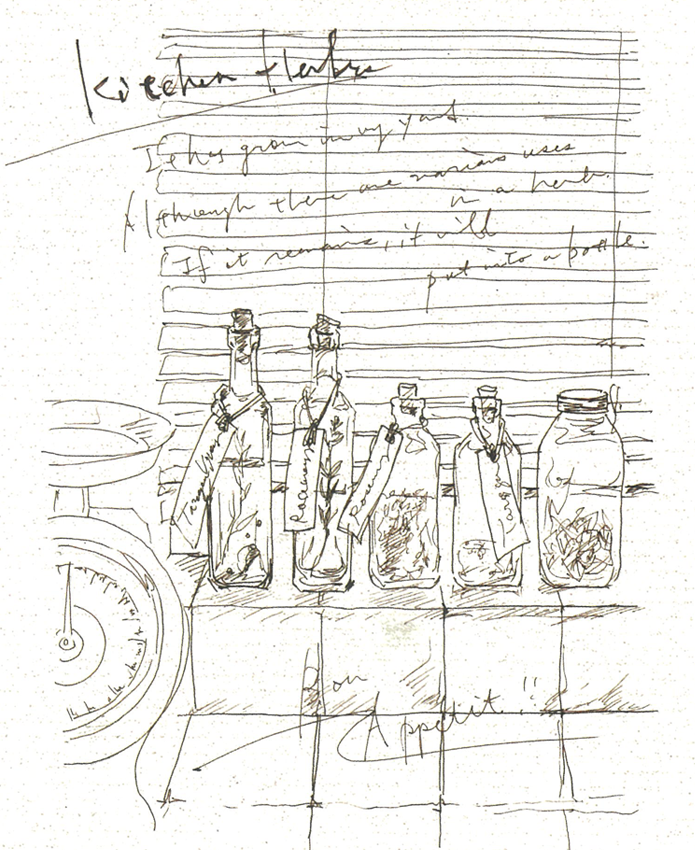 Kitchen Herbs
It has grown in my yard.
Although there are various uses
in a herb.
If it remains, it will
put into a bottle.
Rosemary
Bon
Appetit!!